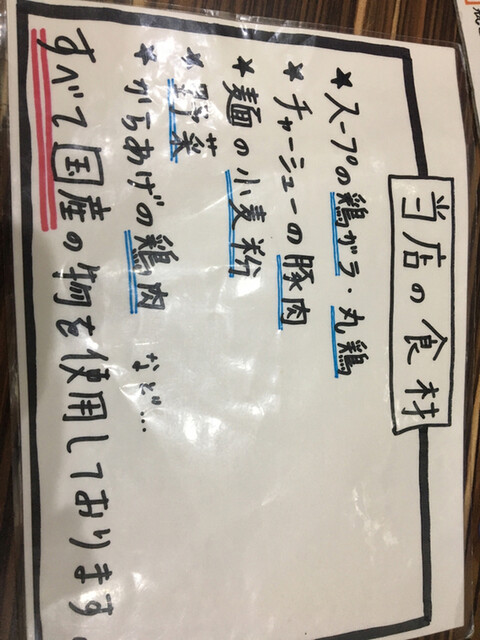 当店の食材
★スープの鶏ガラ・丸鶏
★チャーシューの豚肉
★麺の小麦粉
★野菜
★からあげの鶏肉 など…
すべて国産の物を使用しております。